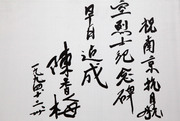 祝南京抗日航
空烈士紀念碑
早日建成
陳香梅
一九九四十二